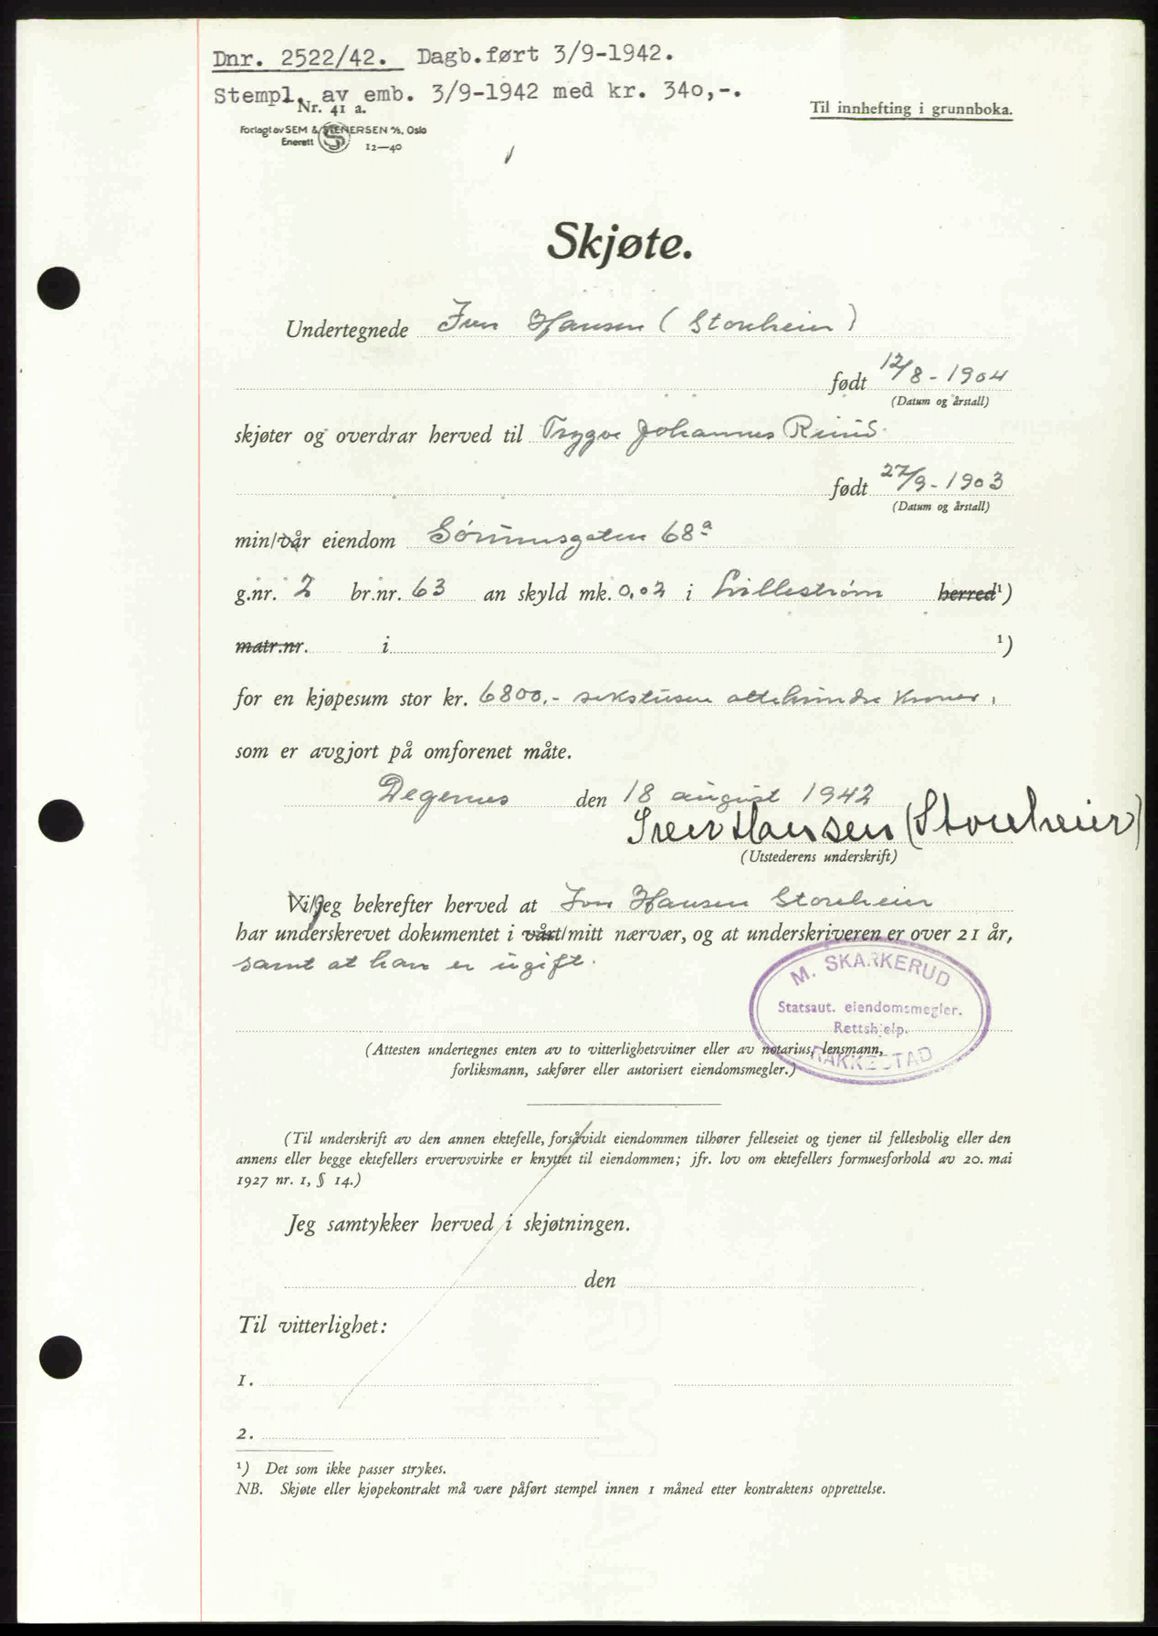 Dnr. 2522/42. Dagb.ført 3/9-1942.
Stempl. av emb. 3/9-1942 med kr. 340,-.
Nr. 41 a.
Til innhefting i grunnboka.
Forlagt av SEM & STENERSEN A/S, Oslo
Enerett S 12—40
Skjøte.
Undertegnede Iver Hansen (Storeheier)
født 12/8 - 1904
(Datum og årstall)
skjøter og overdrar herved til Trygve Johannes
født 27/9 - 1903
(Datum og årstall)
min/vår eiendom 68a
g.nr. 2 br.nr. 63 an skyld mk. 0,02 i Lillestrøm herred¹)
matr.nr. i ¹)
for en kjøpesum stor kr. 6800.- sekstusen åttehundre kroner,
som er avgjort på omforenet måte.
Degernes den 18 august 1942
Iver Hansen (Storeheier)
(Utstederens underskrift)
Vi/Jeg bekrefter herved at Iver Hansen Storeheier
har underskrevet dokumentet i vårt/mitt nærvær, og at underskriveren er over 21 år,
samt at han er ugift.
M. SKARKERUD
Statsaut. eiendomsmegler.
Rettshjelp.
RAKKESTAD
(Attesten undertegnes enten av to vitterlighetsvitner eller av notarius, lensmann,
forliksmann, sakfører eller autorisert eiendomsmegler.)
(Til underskrift av den annen ektefelle, forsåvidt eiendommen tilhører felleseiet og tjener til fellesbolig eller den
annens eller begge ektefellers ervervsvirke er knyttet til eiendommen; jfr. lov om ektefellers formuesforhold av 20. mai
1927 nr. 1, § 14.)
Jeg samtykker herved i skjøtningen.
den
Til vitterlighet:
1.
2.
¹) Det som ikke passer strykes.
NB. Skjøte eller kjøpekontrakt må være påført stempel innen 1 måned etter kontraktens opprettelse.